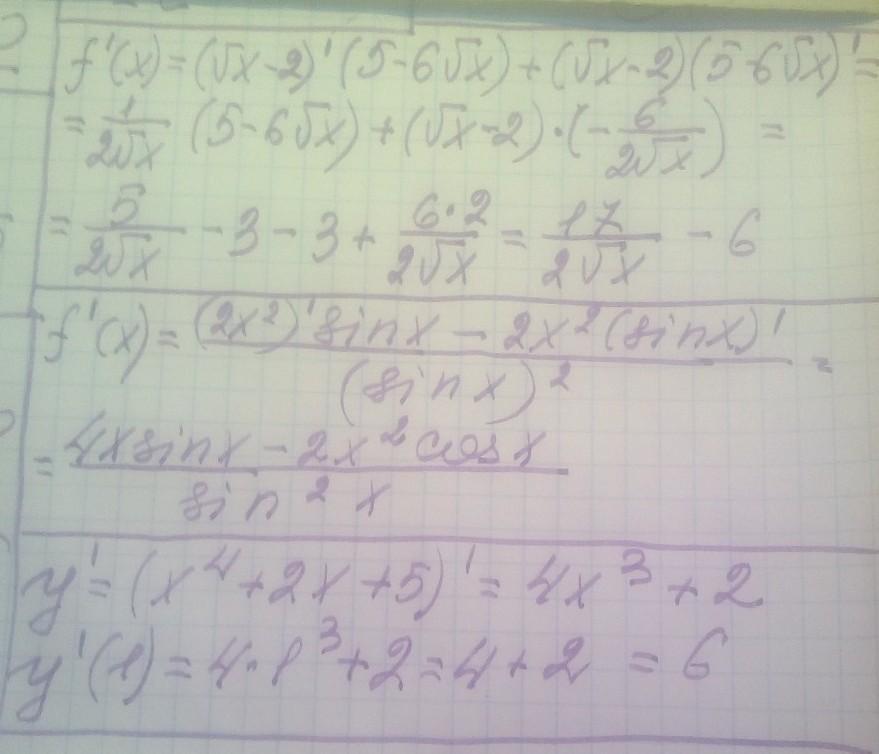 f'(x) = (√x - 2)' (5 - 6√x) + (√x - 2)(5 - 6√x)' =
= 1/(2√x) (5 - 6√x) + (√x - 2) · (- 6/(2√x)) =
= 5/(2√x) - 3 - 3 + (6·2)/(2√x) = 17/(2√x) - 6
f'(x) = ((2x²)' sin x - 2x² (sin x)')/(sin x)² =
= (4x sin x - 2x² cos x)/(sin² x)
y' = (x⁴ + 2x + 5)' = 4x³ + 2
y'(1) = 4·1³ + 2 = 4 + 2 = 6